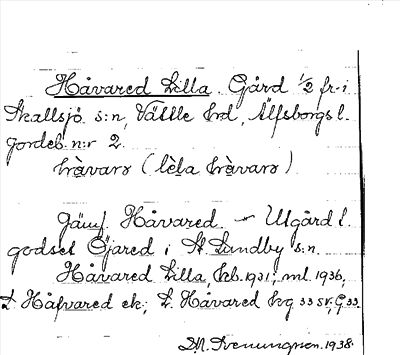 Håvared Lilla. Gård 1/2 fr. i
Skallsjö s:n, Vättle hd, Älfsborgs l.
jordeb. n:r 2.
hàvarə (lèla hàvarə)
Jämf. Håvared. — Utgård t.
godset Öjared i St. Lundby s:n.
Håvared Lilla, kb. 1931; ml. 1936;
L. Håfvared ek; L. Håvared hg 33 SV, G.33.
D.N. Svenungson. 1938.